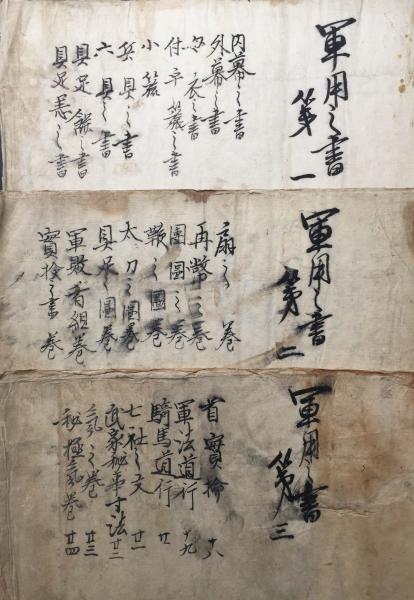 軍用之書
第一
内幕之書
外幕之書
衣之書
付平簱之書
小簱
兵具之書
六具之書
具足餝之書
具足悉之書
軍用之書
第二
扇之巻
再幣之巻
團圖之巻
鞭之圖巻
太刀之圖巻
具足之圖巻
軍敗者組巻
實検之書巻
軍用之書
第三
首實検 十八
軍法道行 十九
騎馬道行 廿
七社之文 廿一
武家秘事寸法 廿二
気之巻 廿三
秘極気巻 廿四